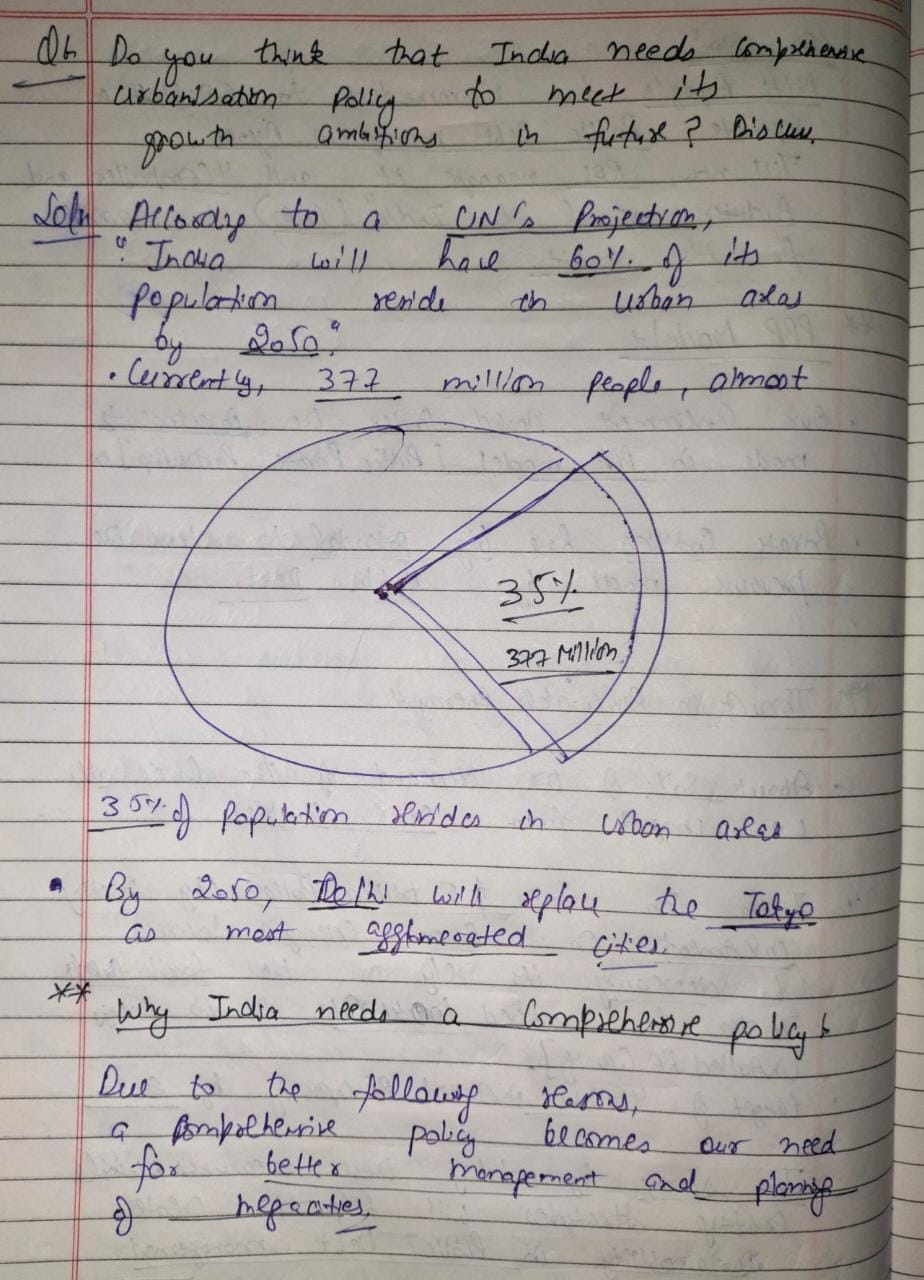 Q6 Do you think that India needs comprehensive
urbanisation policy to meet its
growth ambitions in future? Discuss.
Soln According to a UN's Projection,
"India will have 60% of its
population reside in urban areas
by 2050"
• Currently, 377 million people, almost
35%
377 Million
35% of population resides in urban areas
• By 2050, Delhi will replace the Tokyo
as most agglomerated cities.
** Why India needs a Comprehensive policy?
Due to the following reasons,
a comprehensive policy becomes our need
for better management and planning
of megacities.